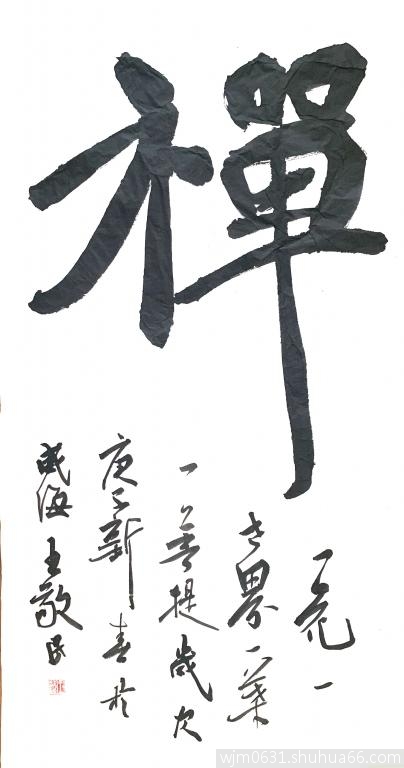 禪
一花一
世界一葉
一菩提歲次
庚子新春於
威海王敬民
wjm0631.shuhua66.com